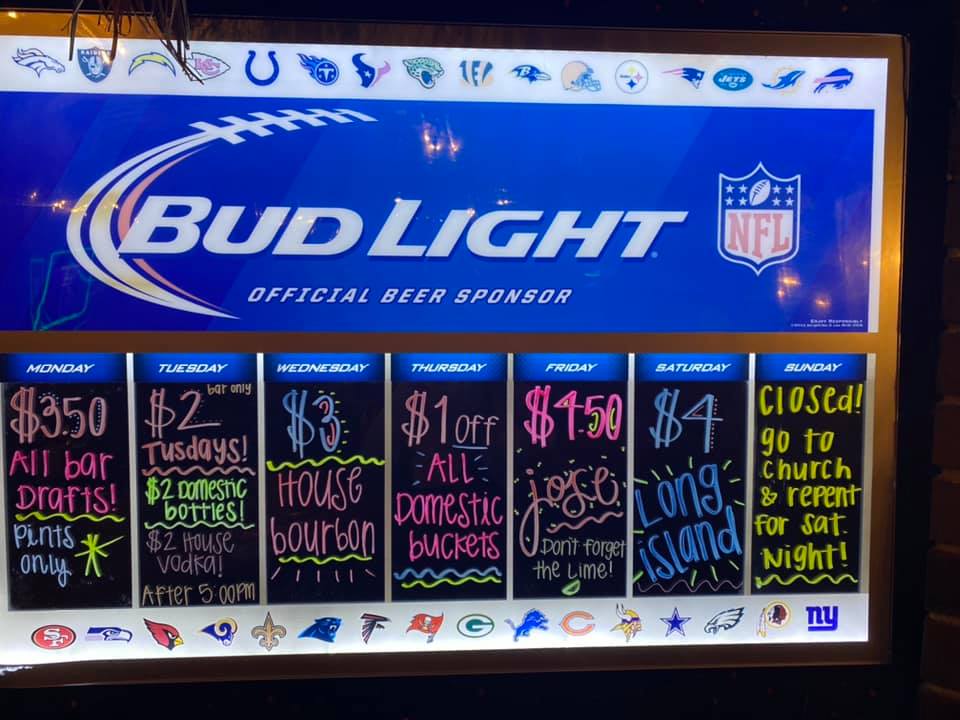 RAIDERS
KC
JETS
BUD LIGHT
OFFICIAL BEER SPONSOR
NFL
ENJOY RESPONSIBLY
MONDAY
$3.50
All bar
Drafts!
pints
only
TUESDAY
bar only
$2
Tusdays!
$2 Domestic
bottles!
$2 House
Vodka!
After 5:00pm
WEDNESDAY
$3
House
bourbon
THURSDAY
$1 off
ALL
Domestic
buckets
FRIDAY
$4.50
Don't forget
the Lime!
SATURDAY
$4
Long
island
SUNDAY
Closed!
go to
church
& repent
for Sat.
Night!
SF
G
C
ny